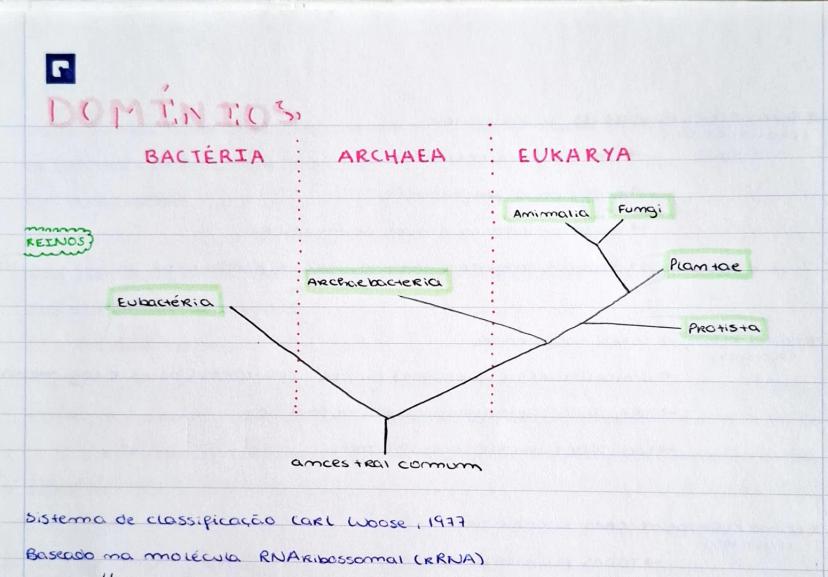 DOMÍNIOS
BACTÉRIA ARCHAEA EUKARYA
Animalia Fungi
REINOS
Plantae
Archaebacteria
Eubactéria
Protista
ancestral comum
Sistema de classificação Carl Woose, 1977
Baseado na molécula RNAribossomal (rRNA)